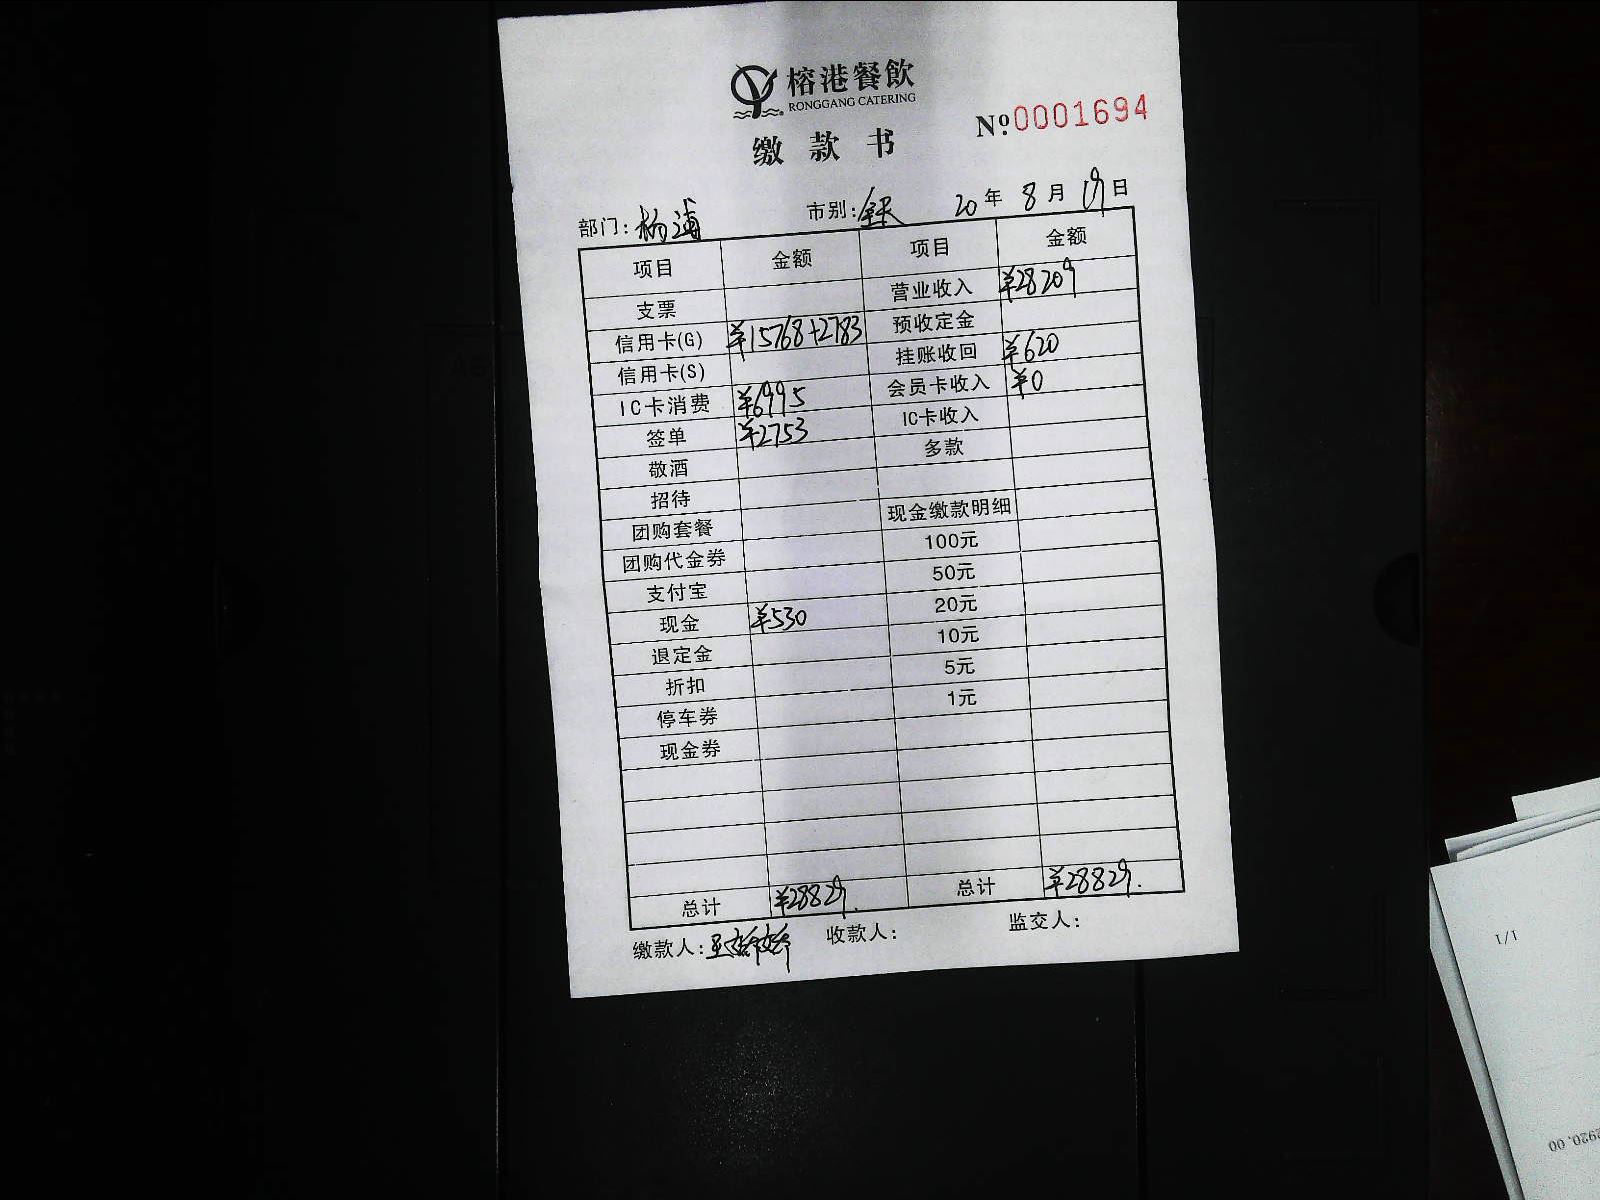 榕港餐飲
RONGGANG CATERING
缴款书 Nº:0001694
部门:杨浦 市别: 20年8月19日
项目 金额 项目 金额
支票 营业收入 ¥28209
信用卡(G) ¥15768+2783 预收定金
信用卡(S) 挂账收回 ¥620
IC卡消费 ¥6995 会员卡收入 ¥0
签单 ¥2753 IC卡收入
敬酒 多款
招待
团购套餐 现金缴款明细
团购代金券 100元
支付宝 50元
现金 ¥530 20元
退定金 10元
折扣 5元
停车券 1元
现金券
总计 ¥28829. 总计 ¥28829.
缴款人:王婷婷 收款人: 监交人:
1/1
2920.00